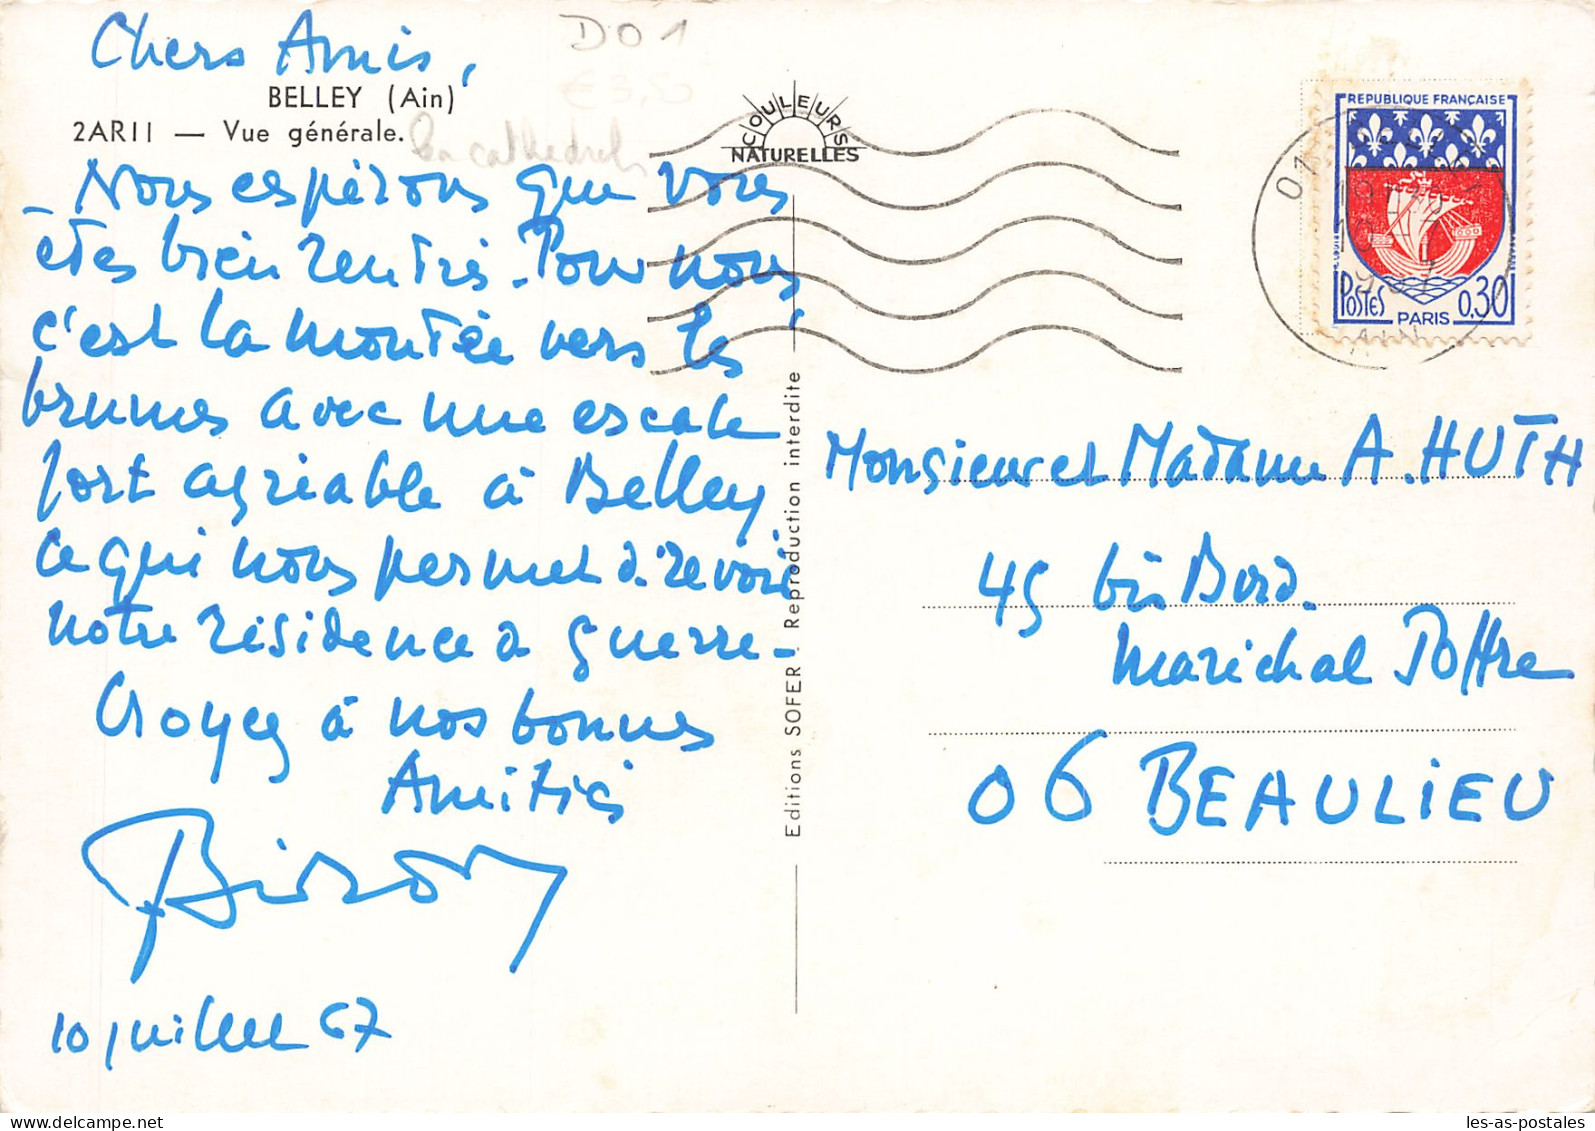 Chers Amis,
D01
€3,50
BELLEY (Ain)
2AR11 — Vue générale.
La cathédrale
Nous espérons que vous
êtes bien rentrés. Pour nous
c'est la montée vers les
brumes avec une escale
fort agréable à Belley
ce qui nous permet de revoir
notre résidence de guerre-
Croyez à nos bonnes
Amitiés
10 juillet 67
COULEURS
NATURELLES
Editions SOFER - Reproduction interdite
REPUBLIQUE FRANÇAISE
POSTES 0,30
PARIS
01
AIN
Monsieur et Madame A. HUTH
45 bis Bord.
Maréchal Joffre
06 BEAULIEU
les-as-postales
delcampe.net